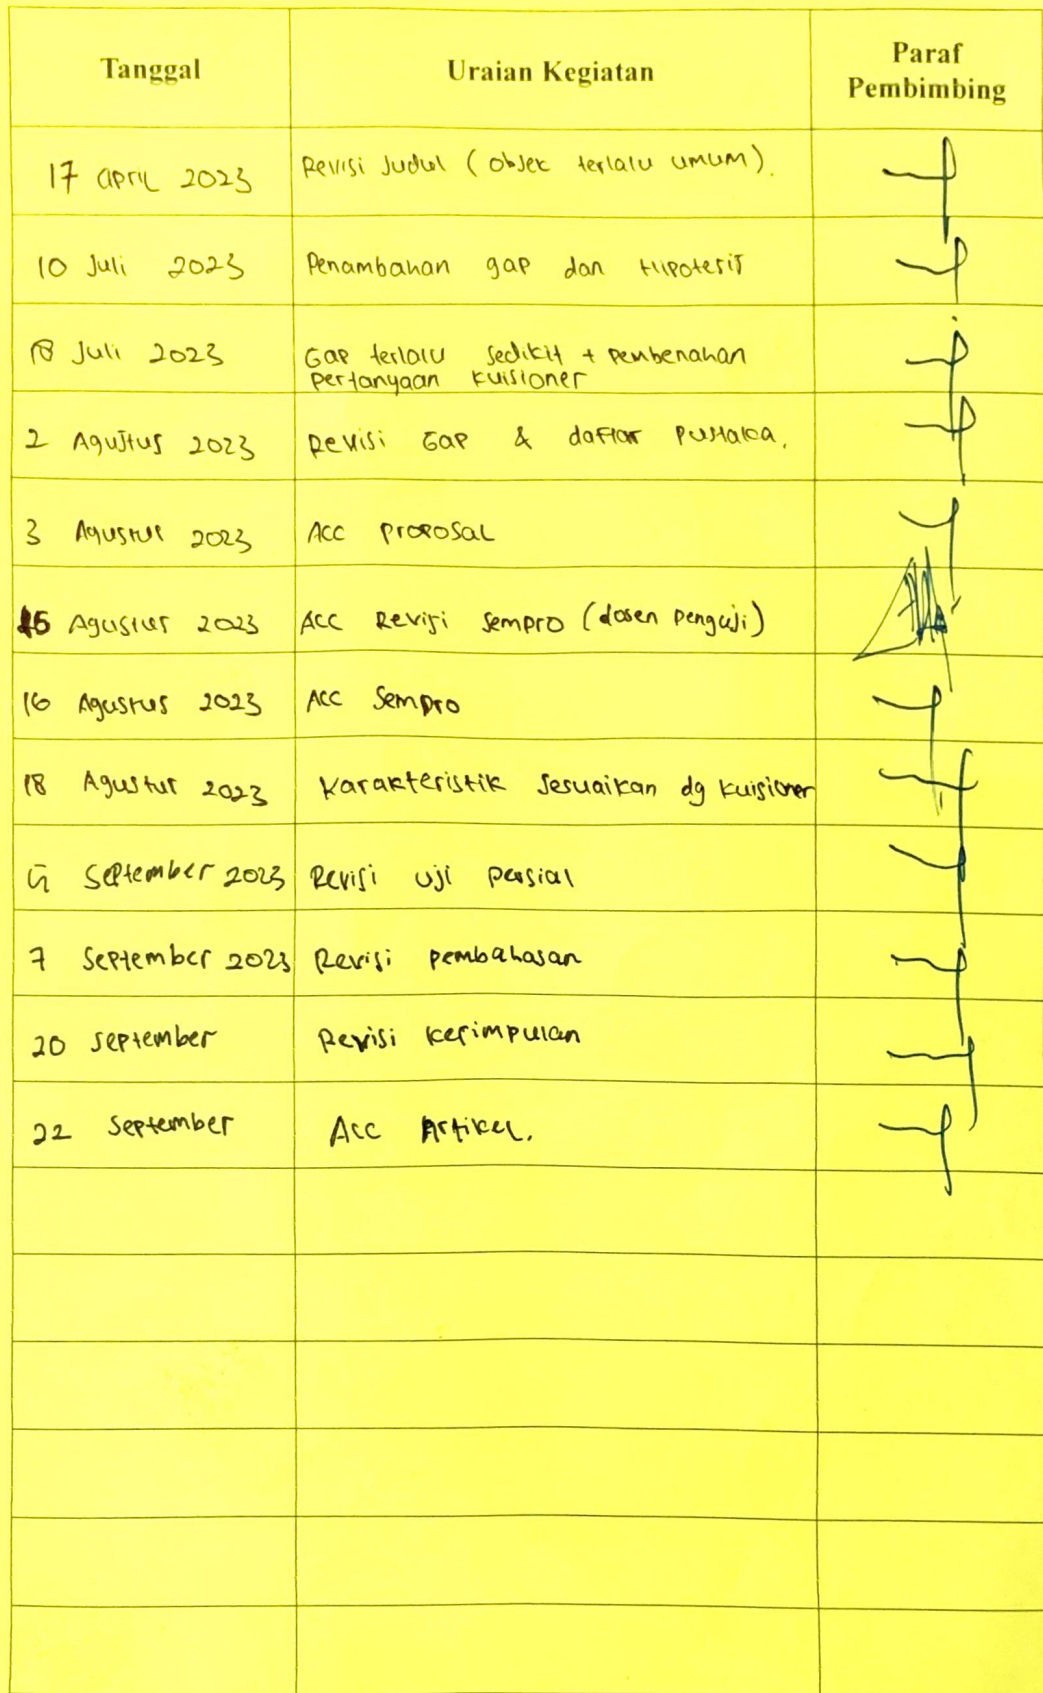 Tanggal Uraian Kegiatan Paraf
Pembimbing
17 april 2023 Revisi Judul (objek terlalu umum).
10 Juli 2023 Penambahan gap dan Hipotesis
18 Juli 2023 Gap terlalu sedikit + pembenahan
pertanyaan kuisioner
2 Agustus 2023 Revisi Gap & daftar pustaka.
3 Agustus 2023 Acc proposal
15 Agustus 2023 Acc Revisi sempro (dosen penguji)
16 Agustus 2023 Acc Sempro
18 Agustus 2023 Karakteristik sesuaikan dg kuisioner
September 2023 Revisi uji parsial
7 September 2023 Revisi pembahasan
20 september Revisi kesimpulan
22 September Acc Artikel.